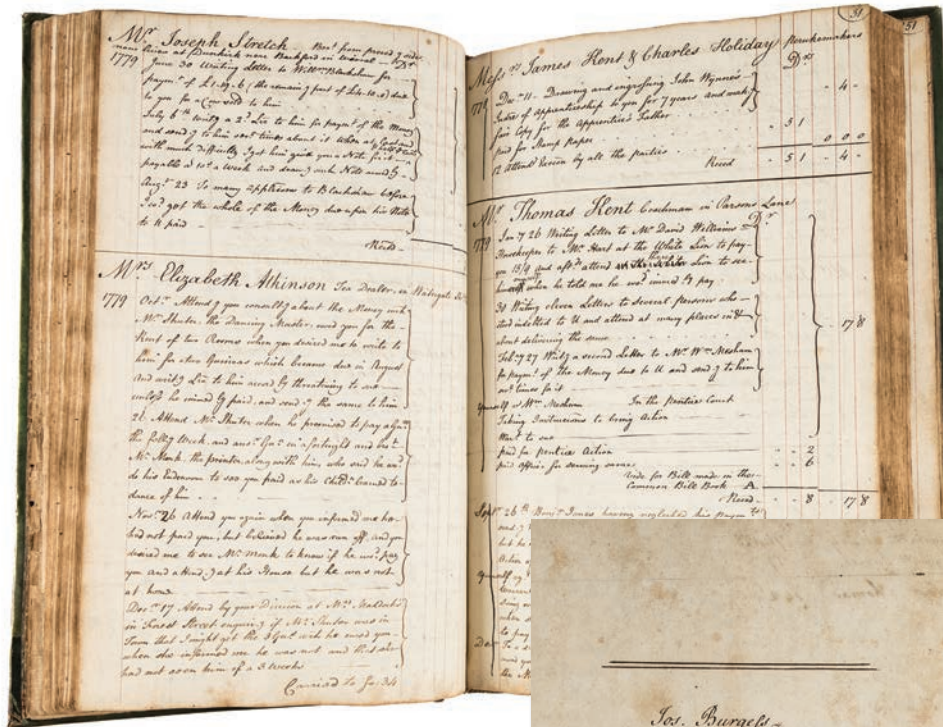 Mr. Joseph Stretch
1779 June 30 Writing Letter to Willm. Blackshaw for
paymt. of £1-19-6 (the remaing. part of £4-10-0) due
to you for a Cow sold to him
July 6th writg a 2d. Lre to him for paymt. of the Money
and sendg to him sevl. times about it when at last and
with much difficulty I got him give you a Note for it
payable at 10s. a Week and drawg such Note
Augt. 23 To many applicons to Blackshaw before
I cod. got the whole of the Money due upon his Note
to U paid
Reced.
Mrs. Elizabeth Atkinson Tea Dealer in Watergate
1779 Octr. Attendg you consultg about the Money
Mr. Shuter, the Dancing Master, owed you for the
Rent of two Rooms when you desired me to write to
him for two Guineas which became due in August
and writg Lre to him accordly threatning to sue
unless he immedly paid, and sendg the same to him
21. Attend Mr. Shuter when he promised to pay a Gua.
the follg Week, and anor. Gua. in a fortnight
Mr. Monk, the printer, along with him, who said he wod.
do his Endeavour to see you paid as his Childn. learned to
dance of him
Novr. 26 Attend you again when you informed me he
had not paid you, but believed he was run off, and you
desired me to see Mr. Monk to know if he wod. pay
you and attendg at his House but he was not
at home
Decr. 17 Attend by your Direcion at Mrs.
in Forest Street enquirg if Mr. Shuter was in
Town that I might get the Guas. wch he owed you
when she informed me he was not and that she
had not seen him of a 3 Weeks
Carried to fo: 34
51
51
Messrs. James Kent & Charles Holiday Perukemakers
Drs.
1779 Decr. 11 Drawing and engrossing John Wynne's
Indres of apprenticeship to you for 7 years and makg
fair Copy for the Apprentice's Father
- 4 -
paid for Stamp Paper
- 5 1
12 Attend Execon by all the parties
0 0 0
Reced
- 5 1 - 4 -
Mr. Thomas Kent Coachman in Parsons Lane
Dr.
1779 Jany 26 Writing Letter to Mr. David Williams
Housekeeper to Mr. Hart at the White Lion to pay
you 15/9 and aftds. attend at the White Lion to see
him when he told me he wod. immedly pay
Writing eleven Letters to several persons who
stood indebted to U and attend at many places in &
about delivering the same
- 17 8
Feby 27 Writg a second Letter to Mr. Wm. Mesham
for paymt. of the Money due to U and sendg to him
sevl. times for it
Yourself v Wm. Mesham In the Pentice Court
Taking Instructions to bring Action
Wart. to sue
paid for Pentice Action - - 2
paid officer for serving same - - 6
Vide for Bill made in the
Common Bill Book A.
Reced. - - 8 - 17 8
Sepr. 26th Benjn. Jones having neglected his Paymts.
Jos. Burgess